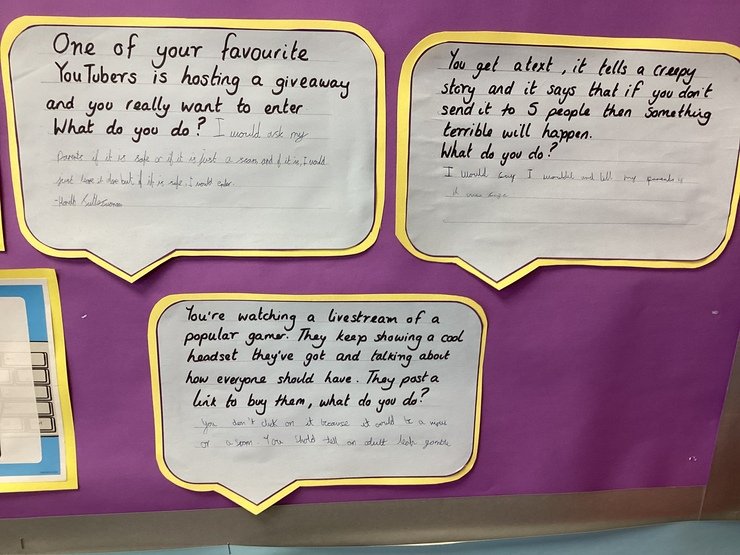 One of your favourite
YouTubers is hosting a giveaway
and you really want to enter
What do you do? I would ask my
parents if it is safe or if it is just a scam and if it is, I would
just leave it alone but if it is safe, I would enter.
You get a text, it tells a creepy
story and it says that if you don't
send it to 5 people then something
terrible will happen.
What do you do?
I would say I wouldn't and tell my parents if
it was
You're watching a livestream of a
popular gamer. They keep showing a cool
headset they've got and talking about
how everyone should have. They post a
link to buy them, what do you do?
You don't click on it because it could be a virus
or a scam. You should tell an adult